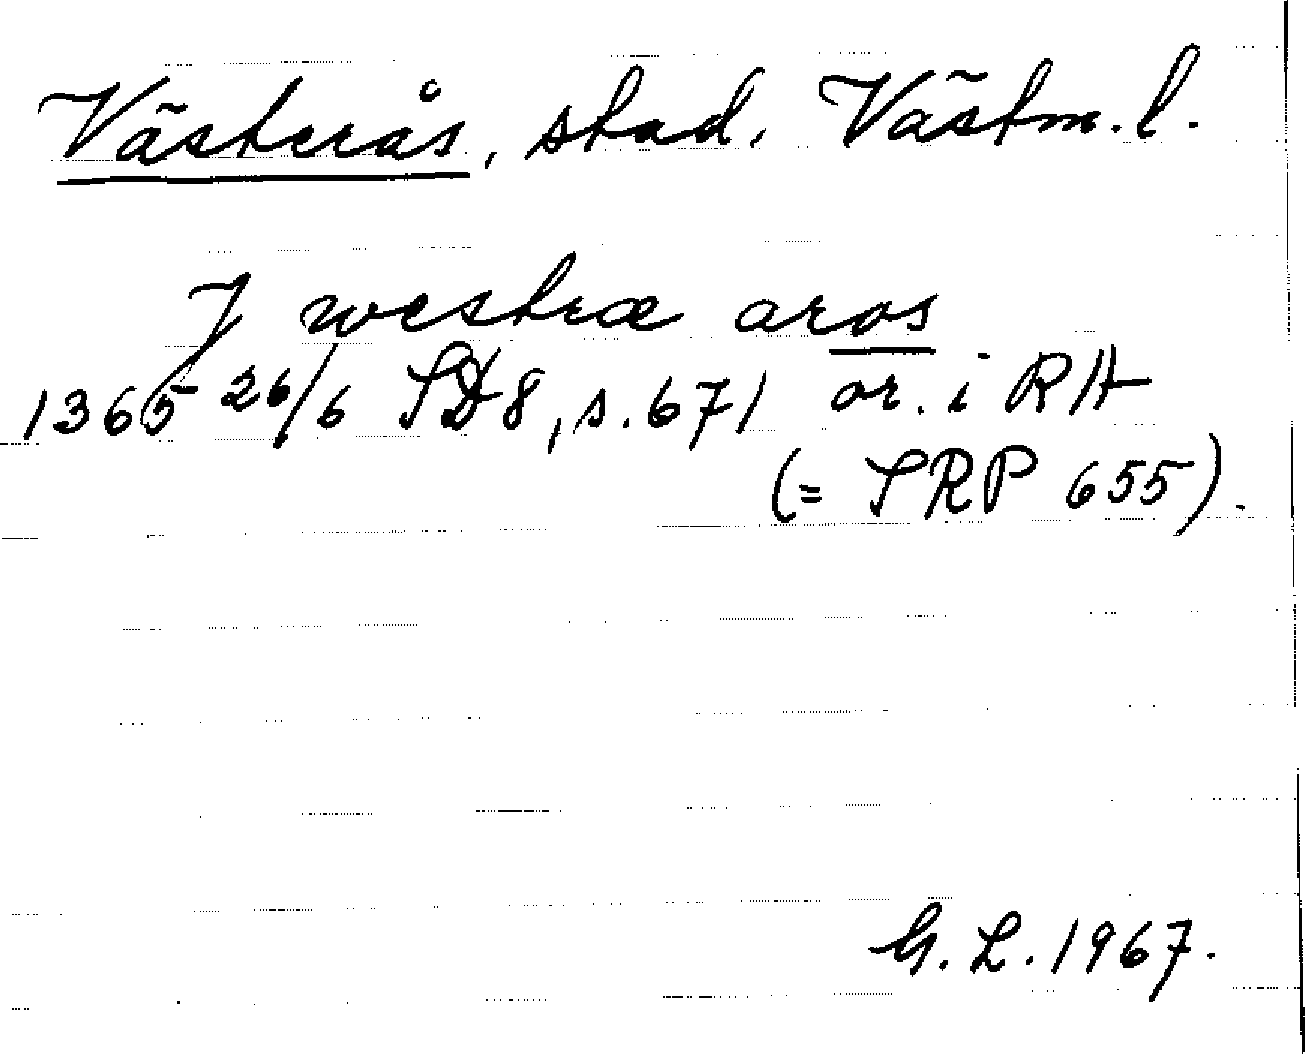 Västerås, stad, Västm. l.
J westræ aros
1365 26/6 SD 8, s. 671 or. i RA
(= SRP 655).
G. L. 1967.